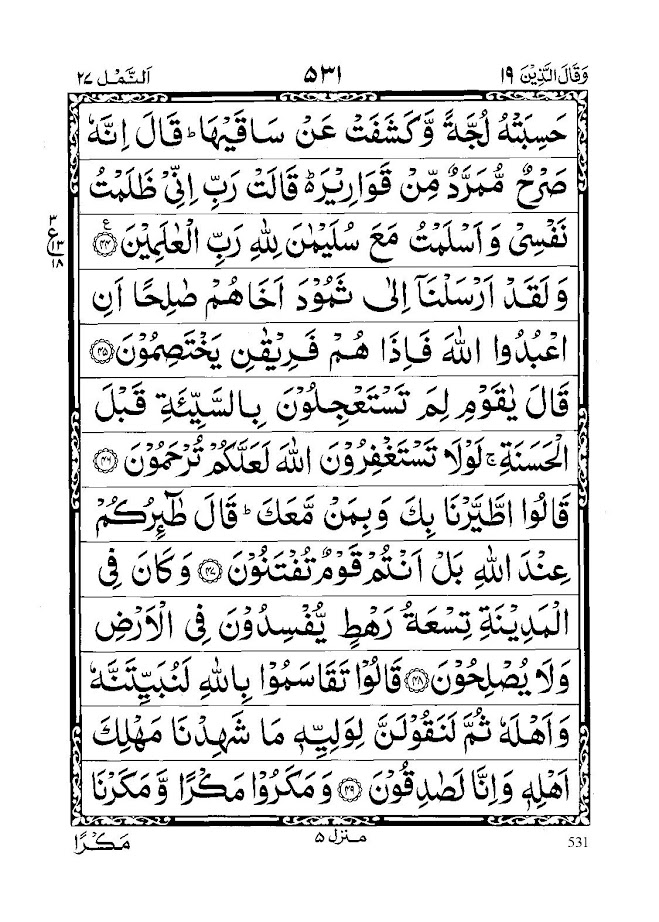 وَقَالَ الَّذِیْنَ ۱۹ ۵۳۱ اَلنَّمْل ۲۷
حَسِبَتْهُ لُجَّةً وَّكَشَفَتْ عَنْ سَاقَیْهَا ؕ قَالَ اِنَّهٗ
صَرْحٌ مُّمَرَّدٌ مِّنْ قَوَارِیْرَ ؕ۬ قَالَتْ رَبِّ اِنِّیْ ظَلَمْتُ
نَفْسِیْ وَاَسْلَمْتُ مَعَ سُلَیْمٰنَ لِلّٰهِ رَبِّ الْعٰلَمِیْنَ ۠﴿۴۴﴾
۳
ع
۱۳
۱۸
وَلَقَدْ اَرْسَلْنَاۤ اِلٰی ثَمُوْدَ اَخَاهُمْ صٰلِحًا اَنِ
اعْبُدُوا اللّٰهَ فَاِذَا هُمْ فَرِیْقٰنِ یَخْتَصِمُوْنَ ﴿۴۵﴾
قَالَ یٰقَوْمِ لِمَ تَسْتَعْجِلُوْنَ بِالسَّیِّئَةِ قَبْلَ
الْحَسَنَةِ ۚ لَوْلَا تَسْتَغْفِرُوْنَ اللّٰهَ لَعَلَّكُمْ تُرْحَمُوْنَ ﴿۴۶﴾
قَالُوا اطَّیَّرْنَا بِكَ وَبِمَنْ مَّعَكَ ؕ قَالَ طٰٓىِٕرُكُمْ
عِنْدَ اللّٰهِ بَلْ اَنْتُمْ قَوْمٌ تُفْتَنُوْنَ ﴿۴۷﴾ وَكَانَ فِی
الْمَدِیْنَةِ تِسْعَةُ رَهْطٍ یُّفْسِدُوْنَ فِی الْاَرْضِ
وَلَا یُصْلِحُوْنَ ﴿۴۸﴾ قَالُوْا تَقَاسَمُوْا بِاللّٰهِ لَنُبَیِّتَنَّهٗ
وَاَهْلَهٗ ثُمَّ لَنَقُوْلَنَّ لِوَلِیِّهٖ مَا شَهِدْنَا مَهْلِكَ
اَهْلِهٖ وَاِنَّا لَصٰدِقُوْنَ ﴿۴۹﴾ وَمَكَرُوْا مَكْرًا وَّمَكَرْنَا
مَكْرًا منزل ۵ 531